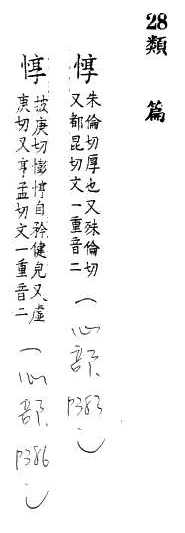 28類篇
惇
朱倫切厚也又殊倫切
又都昆切文一重音二
(心部P383)
悙
披庚切憉悙自矜健皃又虛
庚切又亨孟切文一重音二
(心部P386)